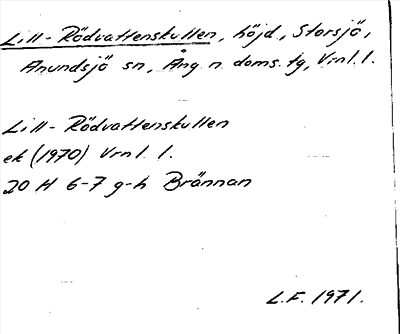 Lill-Rödvattenskullen, höjd, Storsjö,
Anundsjö sn, Ång. n. doms. tg, Vrnl. l.
Lill-Rödvattenskullen
ek (1970) Vrnl. l.
20 H 6-7 g-h Brännan
L.F. 1971.